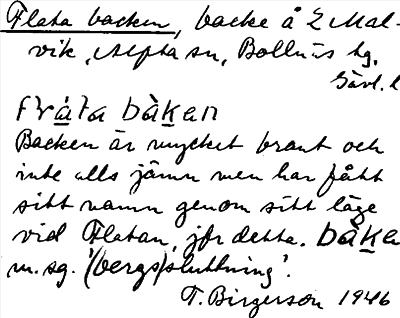 Flata backen, backe å Z Mal-
vik, Alfta sn, Bollnäs tg.
Gävl. l
flàta bàken
Backen är mycket brant och
inte alls jämn men har fått
sitt namn genom sitt läge
vid Flatan, jfr detta. bàke
m. sg. '(bergs)sluttning'.
T. Birgerson 1946